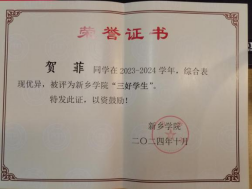 荣誉证书
贺 菲 同学在2023-2024学年，综合表
现优异，被评为新乡学院“三好学生”。
特发此证，以资鼓励！
新乡学院
二〇二四年十月